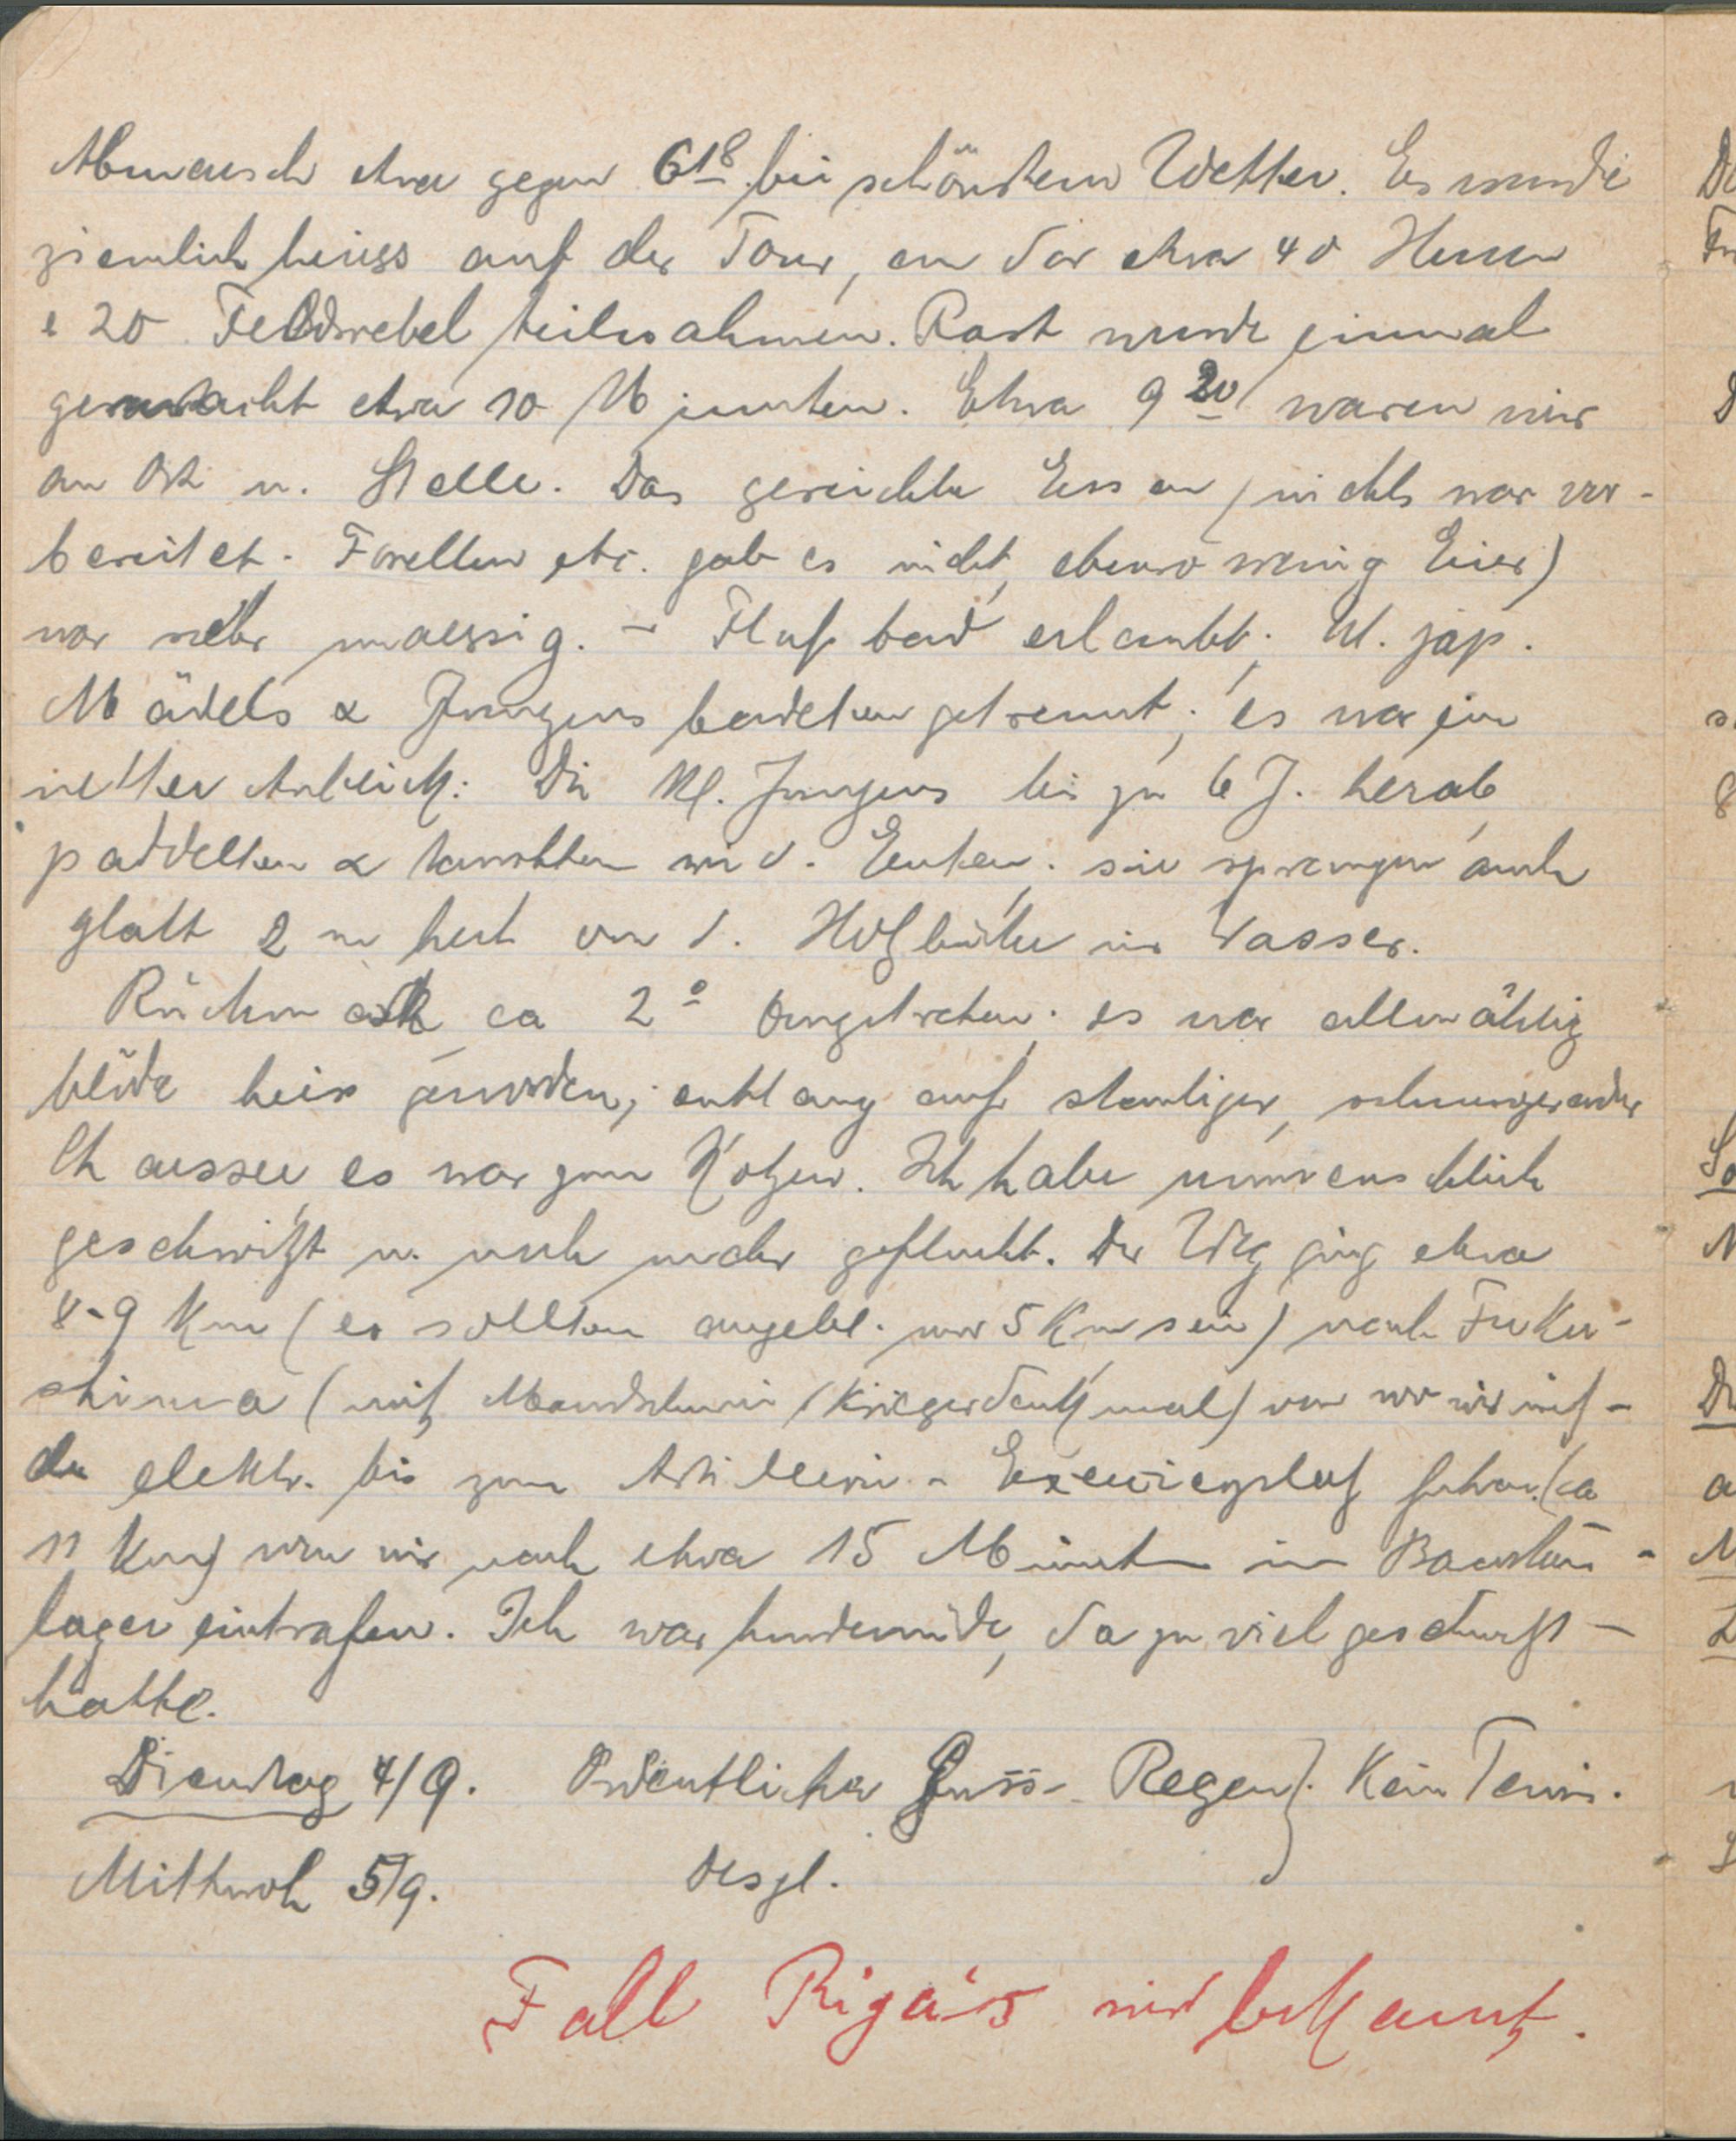 Abmarsch etwa gegen 6 18 bei schönstem Wetter. Es wurde
ziemlich heiss auf der Tour, an der etwa 40 Herren
& 20 Feldwebel teilnahmen. Rast wurde einmal
gemacht etwa 10 Minuten. Etwa 9 20 waren wir
an Ort u. Stelle. Das gereichte Essen (nichts war vor-
bereitet. Forellen etc. gab es nicht, ebenso wenig Eier)
war sehr maessig. – Flußbad erlaubt; kl. jap.
Mädels & Jungens badeten getrennt; es war ein
netter Anblick: Die kl. Jungens bis zu 6 J. herab,
paddelten & tauchten wie d. Enten; sie sprangen auch
glatt 2 m hoch von d. Holzbrücke ins Wasser.
Rückmarsch ca 2 0 angetreten; es war allmählig
blöde heiss geworden; entlang auf staubiger,
Chaussee, es war zum Kotzen. Ich habe unmenschlich
geschwitzt u. noch mehr geflucht. Der Weg ging etwa
8-9 Km (es sollten angebl. nur 5 Km sein) nach Fuku-
shima (mit Mandschurei Kriegerdenkmal) von wo wir mit
der elektr. bis zum Artillerie-Exerzierplatz fuhren (ca
11 Km) von wo wir nach etwa 15 Minuten im Baracken-
lager eintrafen. Ich war hundemüde, da zu viel geschwitzt
hatte.
Dienstag 4/9. Ordentlicher Guss-Regen}. Kein Tennis.
Mittwoch 5/9. desgl.
Fall Riga's wird bekannt.